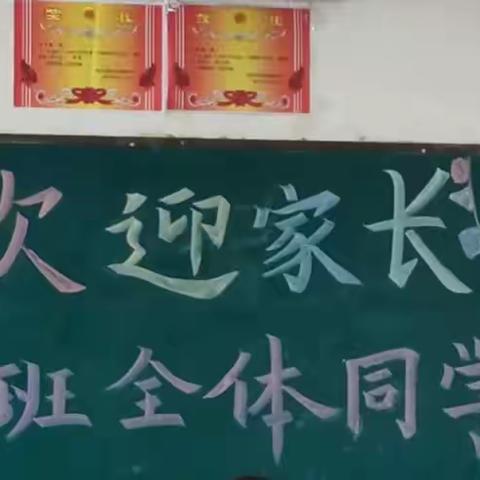 奖状
奖状
欢迎家长
班全体同学